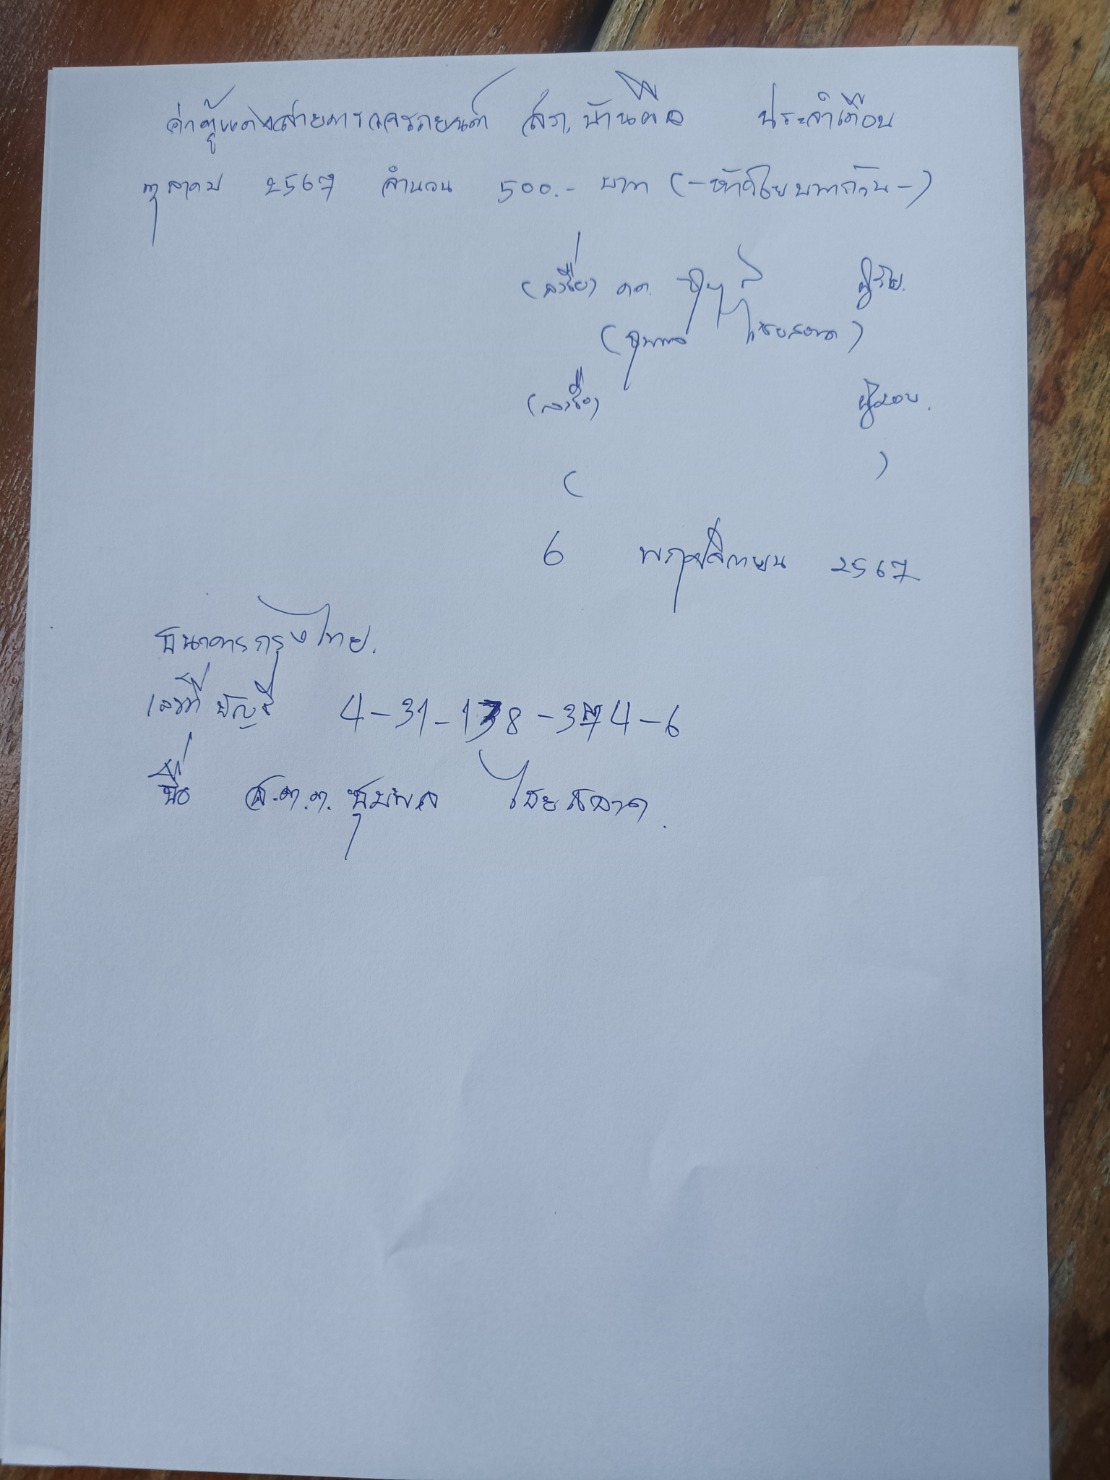 ค่าตู้แดงสายการจราจรถยนต์ สภ.บ้านผือ ประจำเดือน
ตุลาคม 2567 จำนวน 500.- บาท (-ห้าร้อยบาทถ้วน-)
(ลงชื่อ) ด.ต. ผู้รับ.
(ชุมพล ไชยสลาด)
(ลงชื่อ) ผู้มอบ.
( )
6 พฤศจิกายน 2567
ธนาคารกรุงไทย.
เลขที่ บัญชี 4-31-1 8-3 4-6
ชื่อ ส.ต.ต. ชุมพล ไชยสลาด.